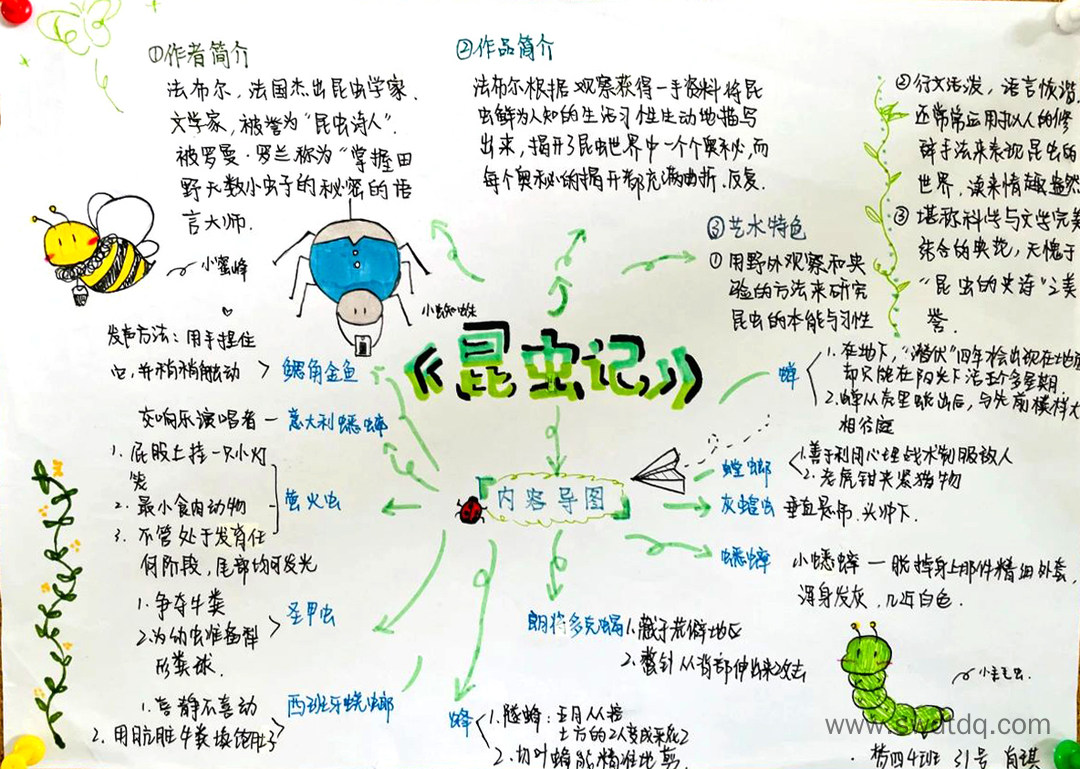 ①作者简介
法布尔，法国杰出昆虫学家、
文学家，被誉为“昆虫诗人”.
被罗曼·罗兰称为“掌握田
野无数小虫子的秘密的语
言大师.
②作品简介
法布尔根据观察获得一手资料将昆
虫鲜为人知的生活习性生动地描写
出来，揭开了昆虫世界中一个个奥秘，而
每个奥秘的揭开都充满曲折、反复.
③艺术特色
①用野外观察和实
验的方法来研究
昆虫的本能与习性
②行文活泼，语言诙谐
还常常运用拟人的修
辞手法来表现昆虫的
世界，读来情趣盎然
③堪称科学与文学完美
结合的典范，无愧于
“昆虫的史诗”之美
誉.
小蜜蜂
小蜘蛛
《昆虫记》
内容导图
发声方法：用手捏住
它，并稍稍触动
鳃角金鱼
交响乐演唱者一意大利蟋蟀
1. 屁股上挂一只小灯
笼
2. 最小食肉动物
3. 不管处于发育任
何阶段，尾部均可发光
萤火虫
1. 争夺牛粪
2. 为幼虫准备梨
形粪球.
圣甲虫
1. 喜静不喜动
2. 用肮脏牛粪填饱肚子
西班牙蜣螂
蝉
1. 在地下，“潜伏”四年才会出现在地面
却只能在阳光下活五个多星期.
2. 蝉从壳里蜕出后，与先前模样大
相径庭
螳螂
1. 善于利用心理战术制服敌人
2. 老虎钳夹紧猎物
灰蝗虫 垂直悬吊.头冲下.
蟋蟀 小蟋蟀一脱掉身上那件精细外套，
浑身发灰，几近白色.
朗格多克蝎
1. 藏于荒僻地区
2. 螫针从背部伸出来攻击
蜂
1. 隧蜂：五月从挖
2. 切叶蜂能精准地剪
小毛毛虫.
www.swdtdq.com
四4班 31号 肖琪